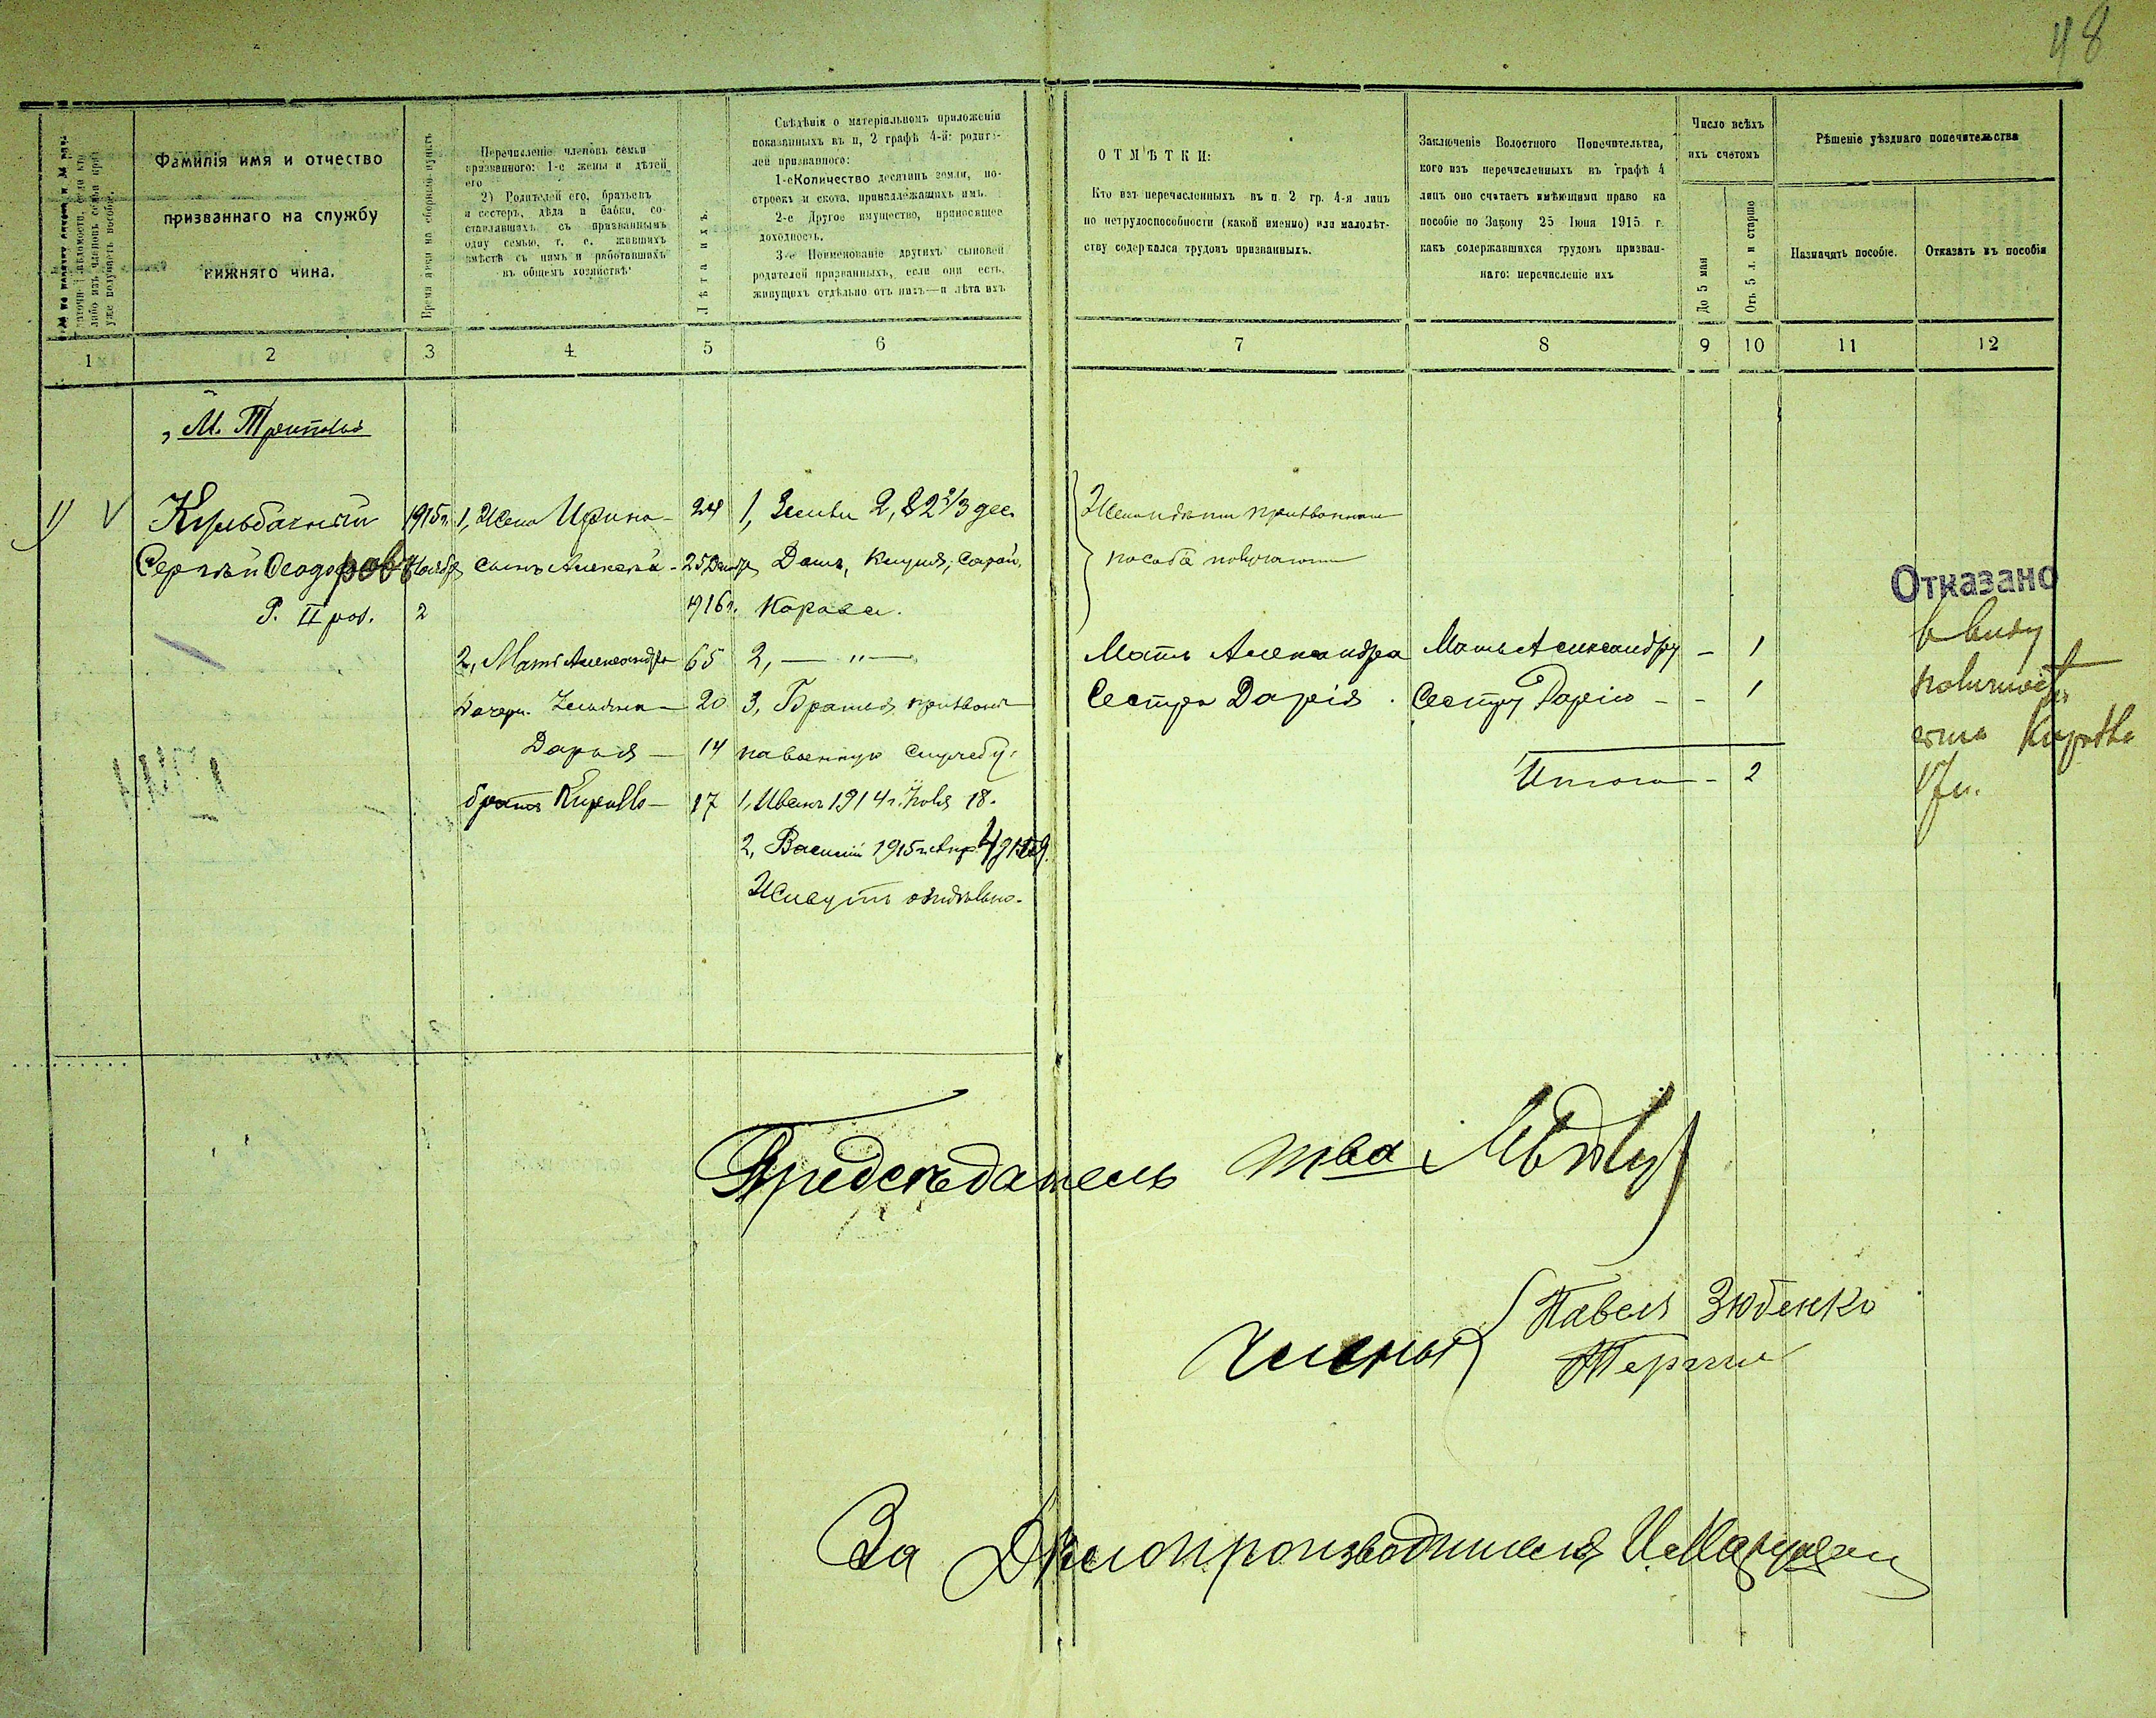 48
Фамилія имя и отчество
призваннаго на службу
нижняго чина.
Время явки на сборный пунктъ
Перечисленіе членовъ семьи
призваннаго: 1-е жены и дѣтей
его
2) Родителей его, братьевъ
и сестеръ, дѣда и бабки, со-
ставлявшихъ съ призваннымъ
одну семью, т. е. жившихъ
вмѣстѣ съ нимъ и работавшихъ
въ общемъ хозяйствѣ
Лѣта ихъ.
Свѣдѣнія о матеріальномъ приложеніи
показанныхъ въ п, 2 графѣ 4-й: родите-
лей призваннаго:
1-е Количество десятинъ земли, по-
строекъ и скота, принадлежащихъ имъ.
2-е Другое имущество, приносящее
доходность.
3-е Поименованіе другихъ сыновей
родителей призванныхъ, если они есть,
живущихъ отдѣльно отъ нихъ—и лѣта ихъ
ОТМѢТКИ:
Кто изъ перечисленныхъ въ п. 2 гр. 4-я лицъ
по нетрудоспособности (какой именно) или малолѣт-
ству содержался трудомъ призванныхъ.
Заключеніе Волостного Попечительства,
кого изъ перечисленныхъ въ графѣ 4
лицъ оно считаетъ имѣющими право на
пособіе по Закону 25 Іюня 1915 г.
какъ содержавшихся трудомъ призван-
наго: перечисленіе ихъ
Число всѣхъ
ихъ счетомъ
До 5 мая
Отъ 5 л. и старше
Рѣшеніе уѣзднаго попечительства
Назначить пособіе.
Отказать въ пособіи
1 2 3 4 5 6 7 8 9 10 11 12
М. Триполье
1) V
Сергѣй Ѳеодоровъ
Р. II раз.
1915г.
Ноября
2
1, Жена Ирина — 24
сынъ Алексѣй - 25 Декабря
1916г.
2, Мать Александра 65
Дочери. — 20
Дарья — 14
братъ Кириллъ — 17
1, Земли 2, 2 2/3 дес.
Домъ, Клуня, Сарай,
Корова.
2, — " —
3, Братья призваны
на военную службу:
1, Иванъ 1914 г. Іюля 18.
2, Василій 1915 г. Апр. 4
Живутъ отдѣльно.
Жена и дѣти призваннаго
пособіе получаютъ
Мать Александра
Сестра Дарія
Мать Александру — 1
Сестру Дарію - - 1
Итого — 2
Отказано
в виду
Кирилла
17 л.
Предсѣдатель
тва
Члены
Павелъ Зюбенко
За Дѣлопроизводителя